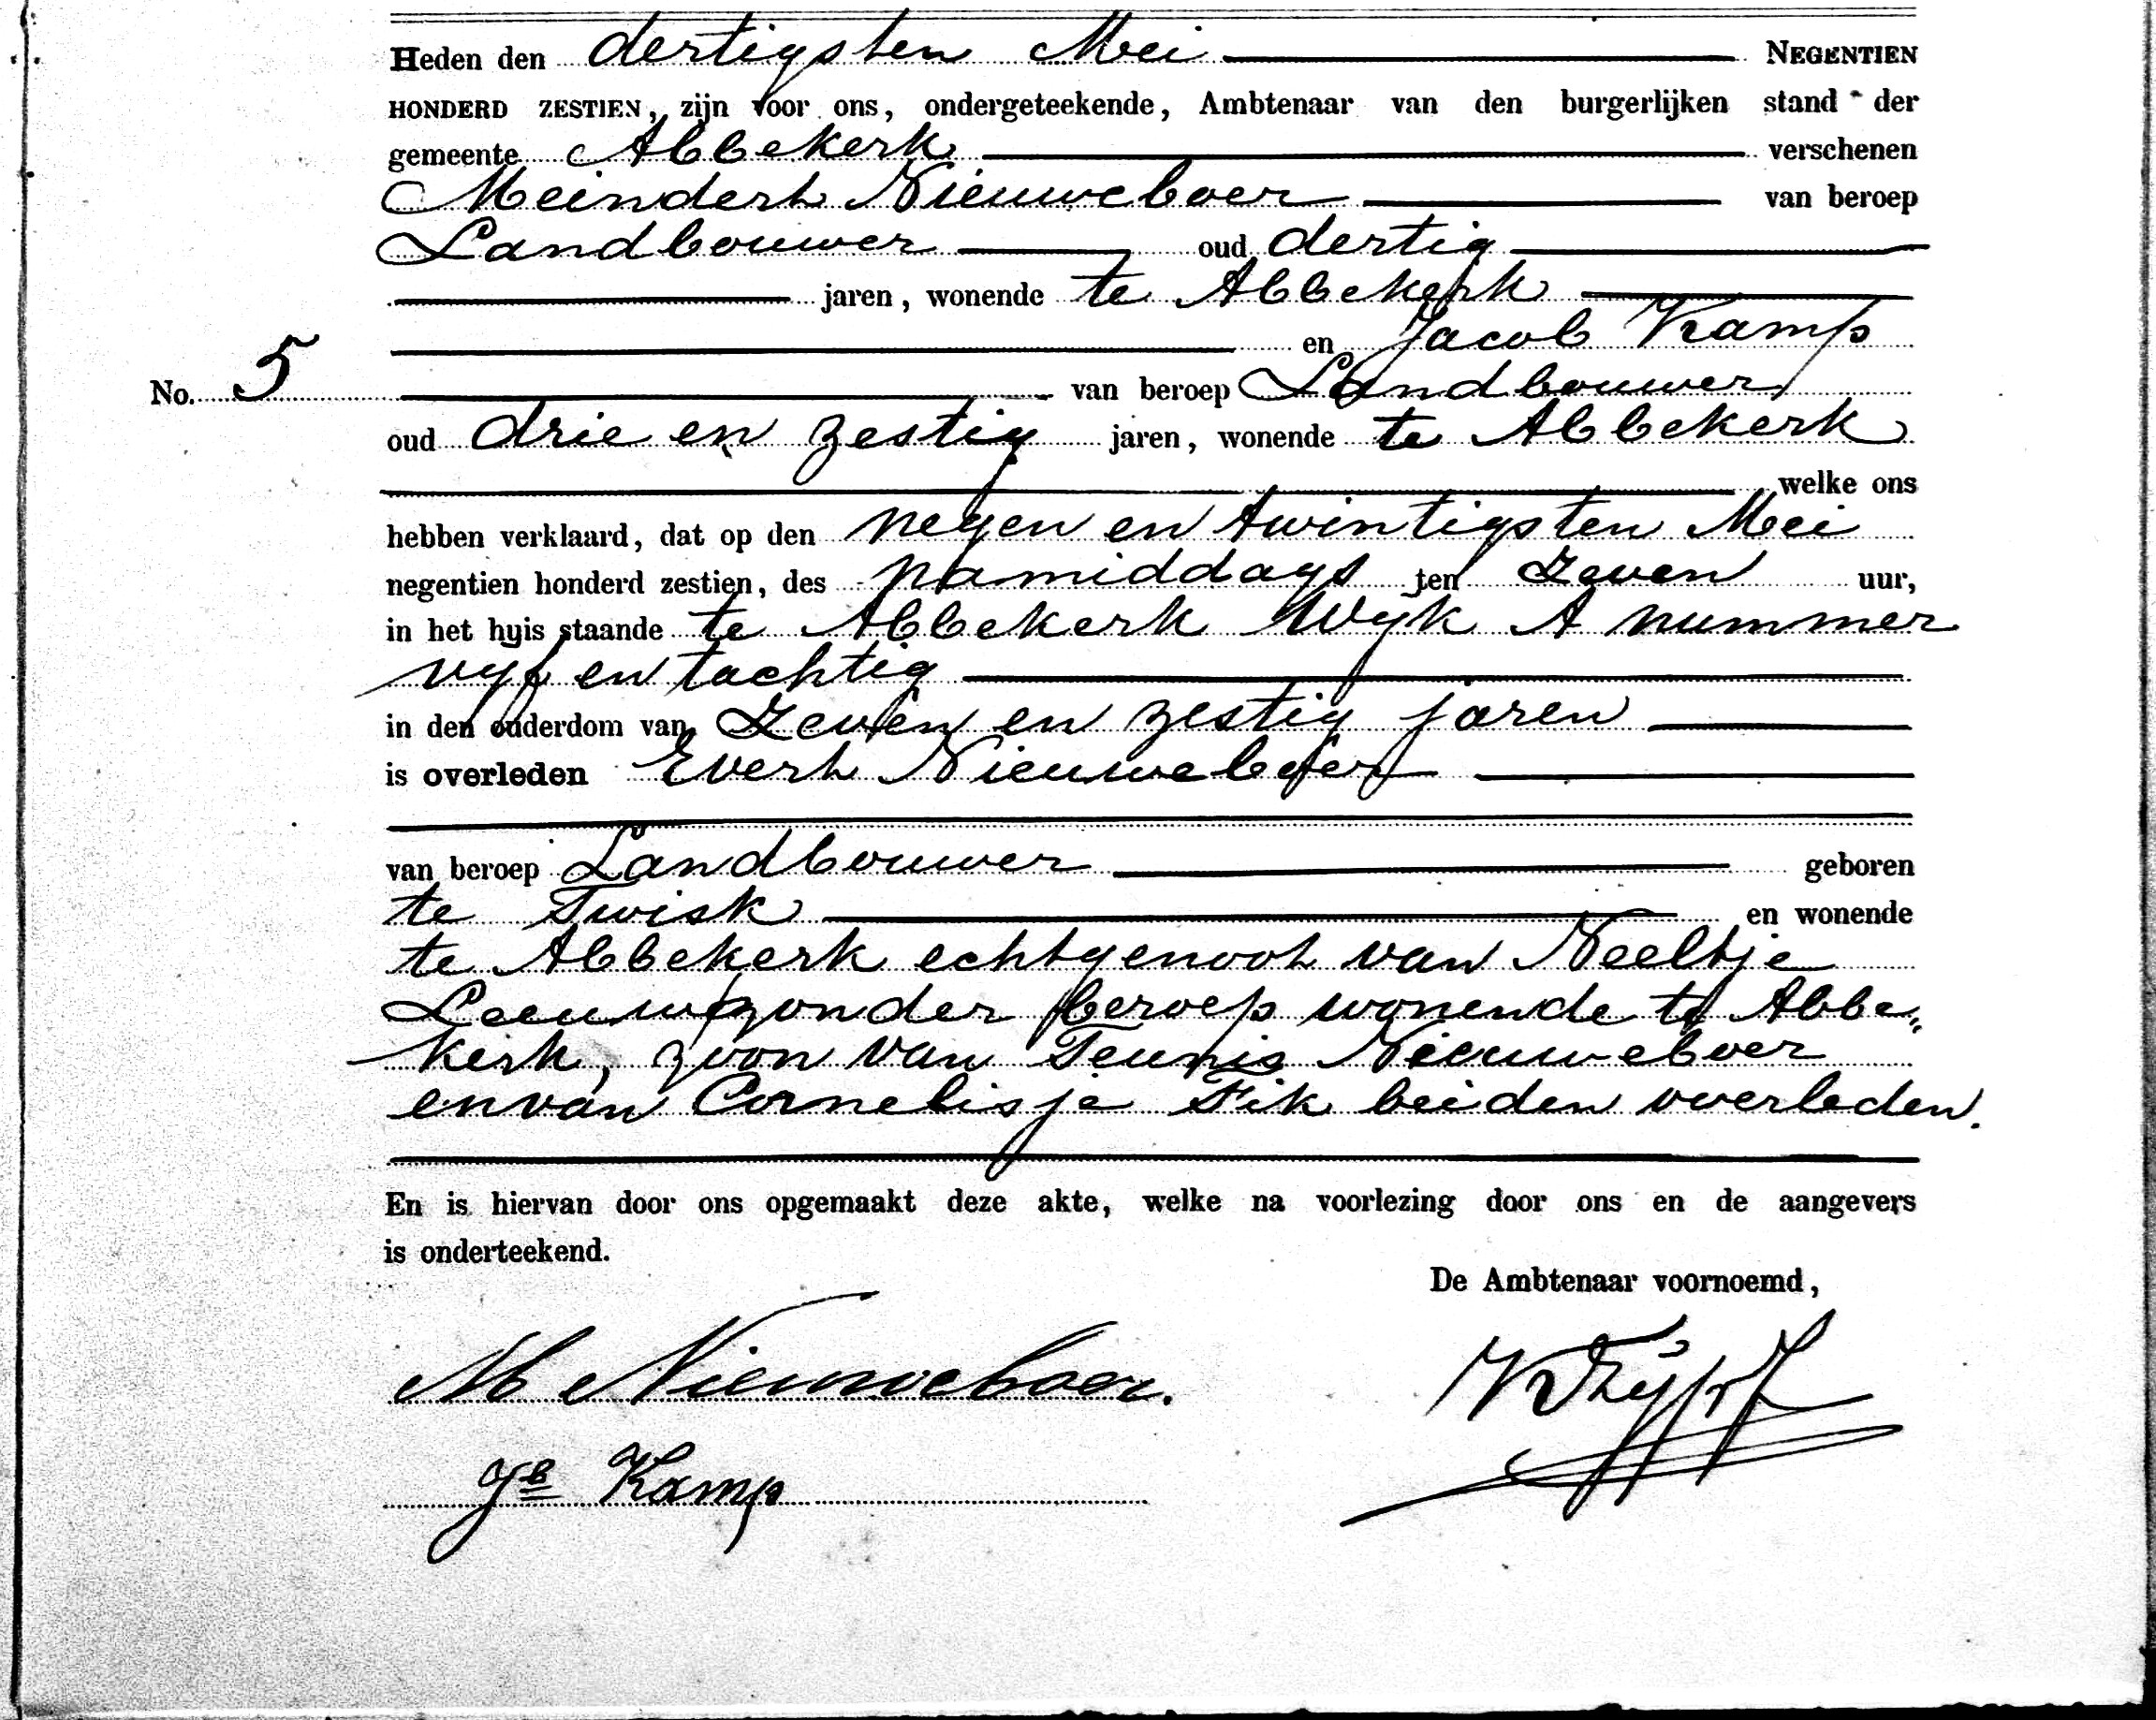 Heden den dertigsten Mei NEGENTIEN
HONDERD ZESTIEN, zijn voor ons, ondergeteekende, Ambtenaar van den burgerlijken stand der
gemeente Abbekerk verschenen
Meindert Nieuweboer van beroep
Landbouwer oud dertig
jaren, wonende te Abbekerk
en Jacob Kamp
No. 5 van beroep Landbouwer
oud drie en zestig jaren, wonende te Abbekerk
welke ons
hebben verklaard, dat op den negen en twintigsten Mei
negentien honderd zestien, des namiddags ten zeven uur,
in het huis staande te Abbekerk Wyk A nummer
vyf en tachtig
in den ouderdom van zeven en zestig jaren
is overleden Evert Nieuweboer
van beroep Landbouwer geboren
te Twisk en wonende
te Abbekerk echtgenoot van Neeltje
Leeuw zonder beroep wonende te Abbe„
kerk, zoon van Teunis Nieuweboer
en van Cornelisje Fik beiden overleden.
En is hiervan door ons opgemaakt deze akte, welke na voorlezing door ons en de aangevers
is onderteekend.
De Ambtenaar voornoemd,
M Nieuweboer.
Jb Kamp